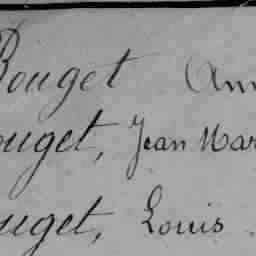 Bouget Ann
ouget, Jean Mar
uget, Louis.